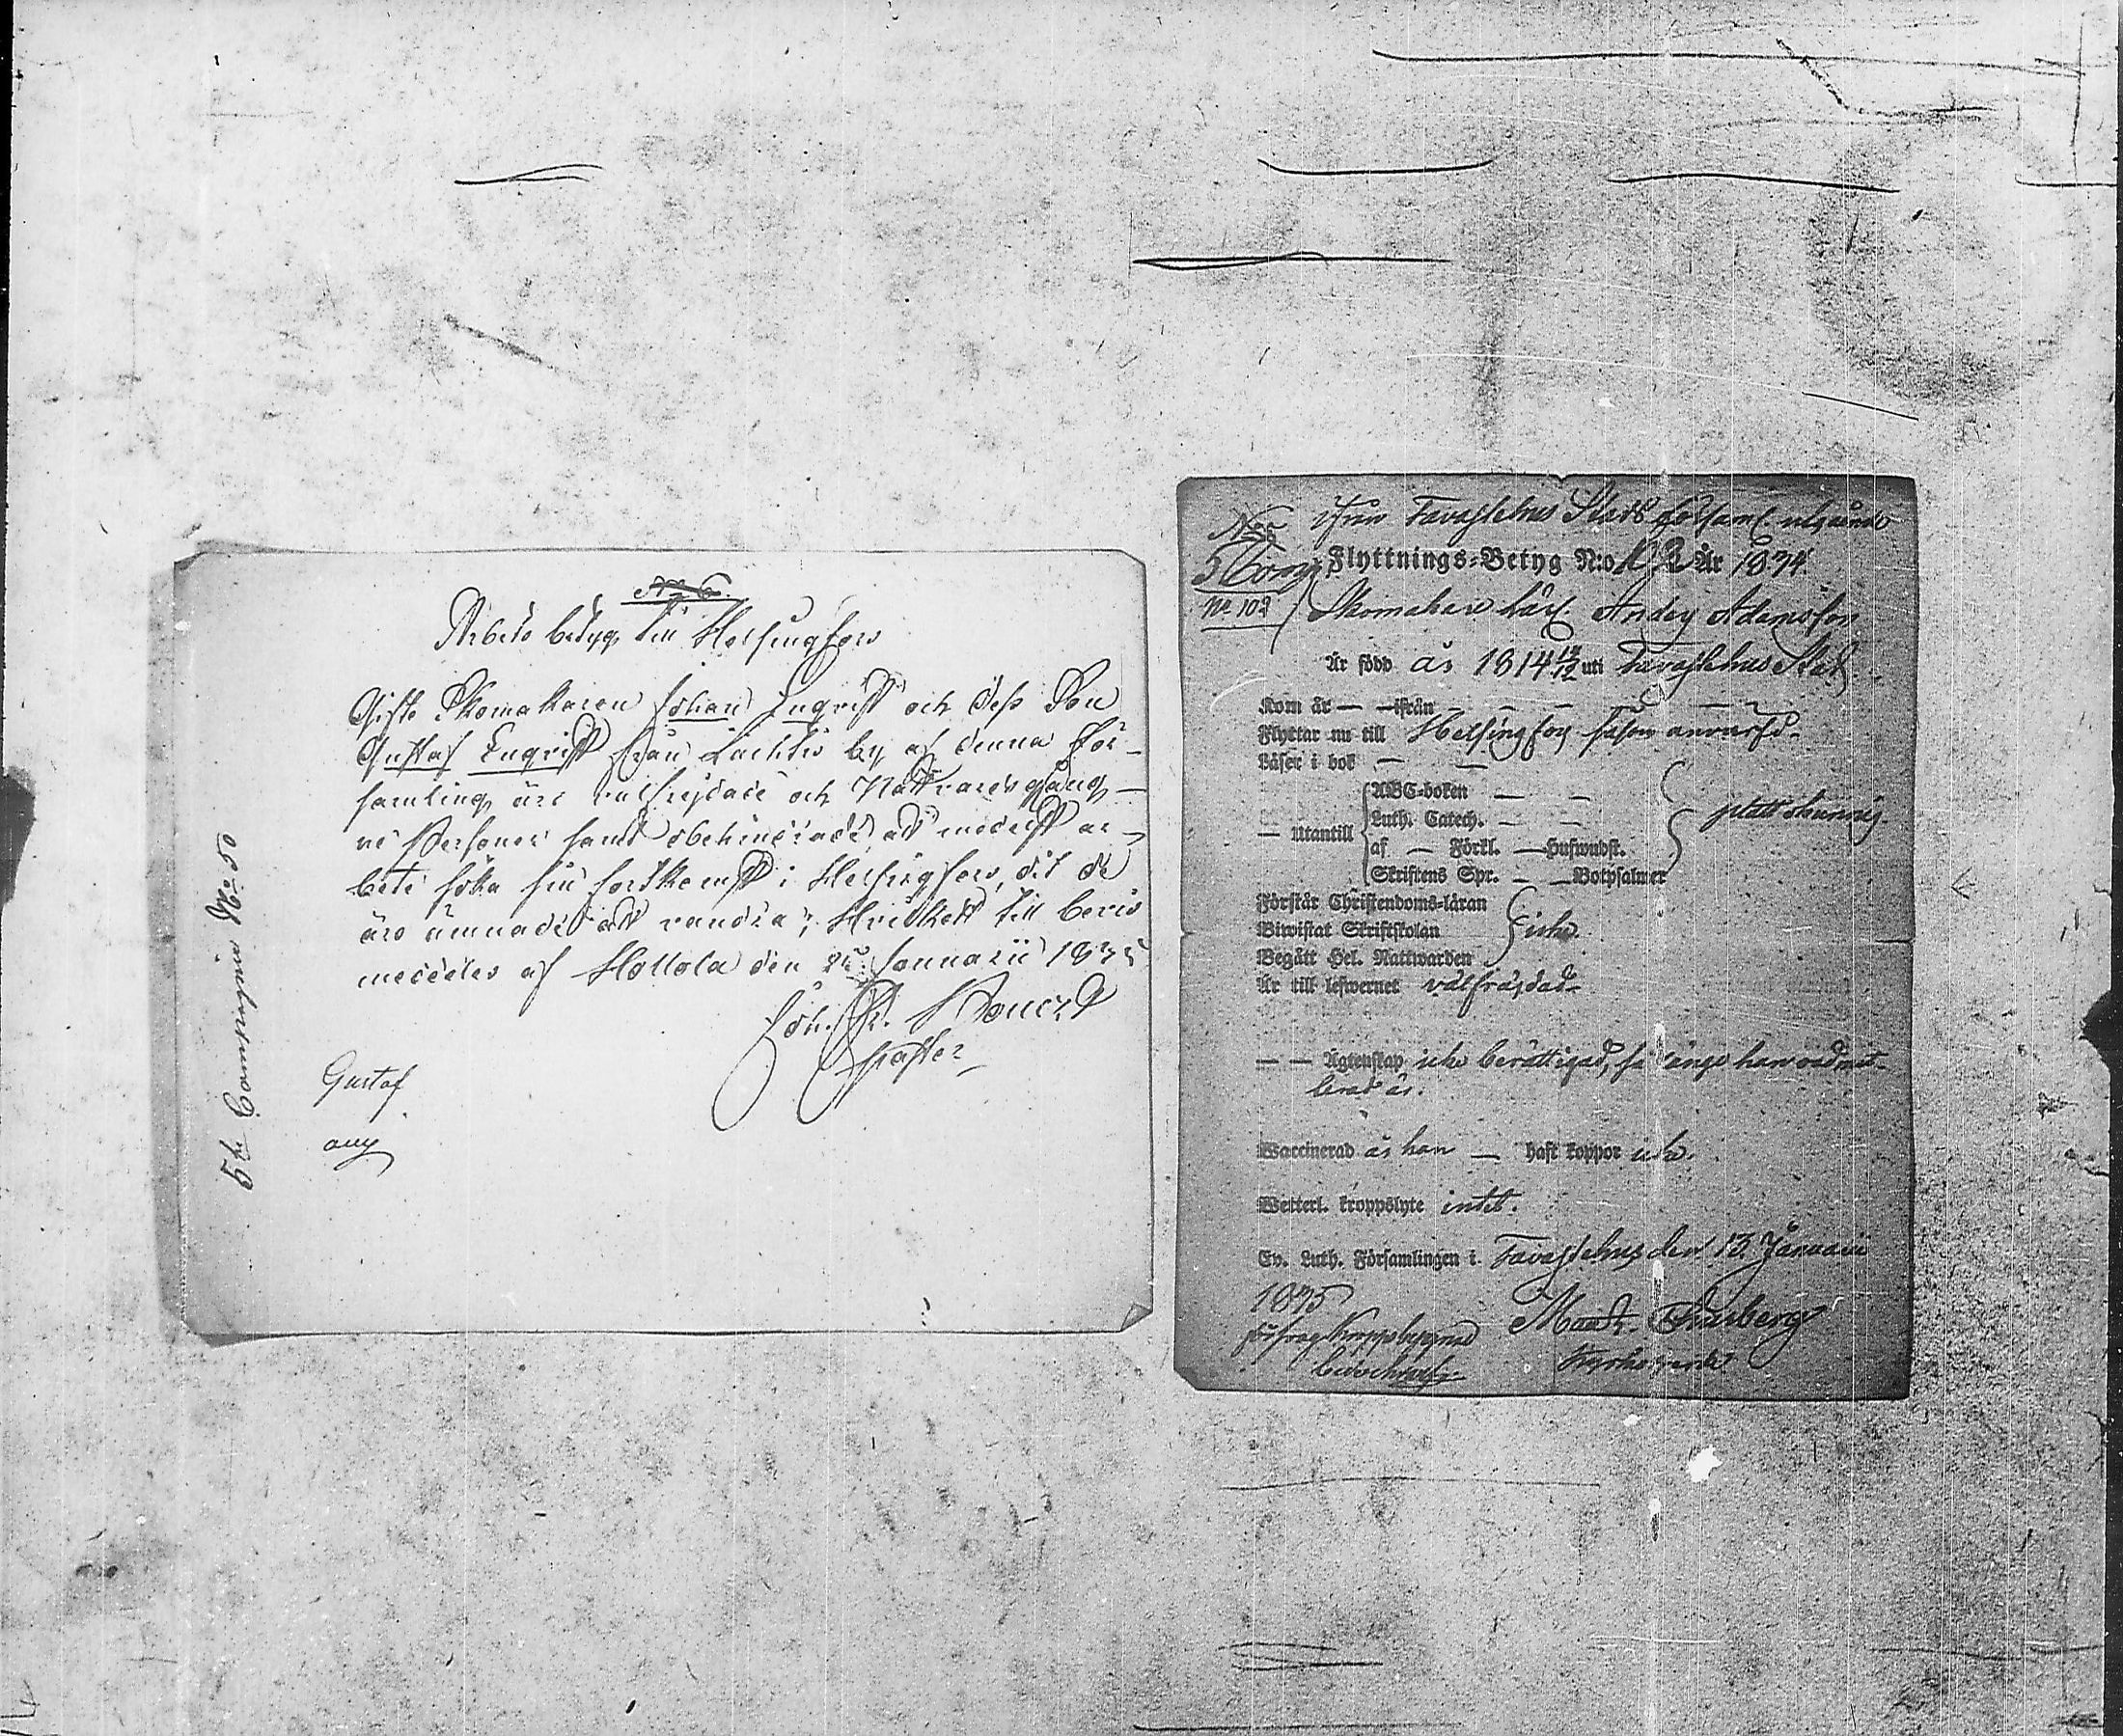 N:o 6.
Arbets betyg till Helsingfors
Gifte Skomakaren Johan Enqvist och dess Son
Gustaf Enqvist från Lachtis by af denna för-
samling äro välfrejdade och Nattvardsgång-
ne Personer samt obehindrade att medelst ar-
bete söka sin fortkomst i Helsingfors, dit de
äro ämnade att vandra; Hvilket till bevis
meddelas af Hollola den Januarii 1835
Joh. Fr.
Pastor
Gustaf
5te Compagnie No 50
Ifrån Tavastehus Stads församl. utgående
No 55
5 Comp.
Flyttnings-Betyg N:o 102 År 1834
No 102
Skomakare lärl. Anders Adamsson
Är född år 1814 12/12 uti Tavastehus Stad
Kom år — ifrån — — —
Flyttar nu till Helsingfors såsom
Läser i bok — —
— Utantill
ABC-boken — —
Luth. Catech. — —
af — Förkl. — Huswudst.
Skriftens Spr. — — Botpsalmer
platt okunnig
Förstår Christendoms-läran
Biwistat Skriftskolan
Begått Hel. Nattwarden
icke.
Är till lefwernet välfräjdad
— — Ägtenskap icke berättigad, så länge han oadmit-
terad är.
Waccinerad är han — haft koppor icke.
Wetterl. kroppslyte intet.
Ev. Luth. Församlingen i Tavastehus den 13 Januarii
1835